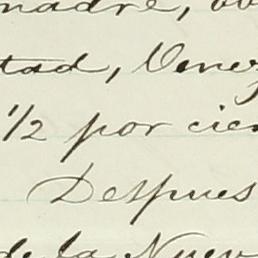 madre,
tad, Venez
1/2 por cien
Despues
de la Nuev